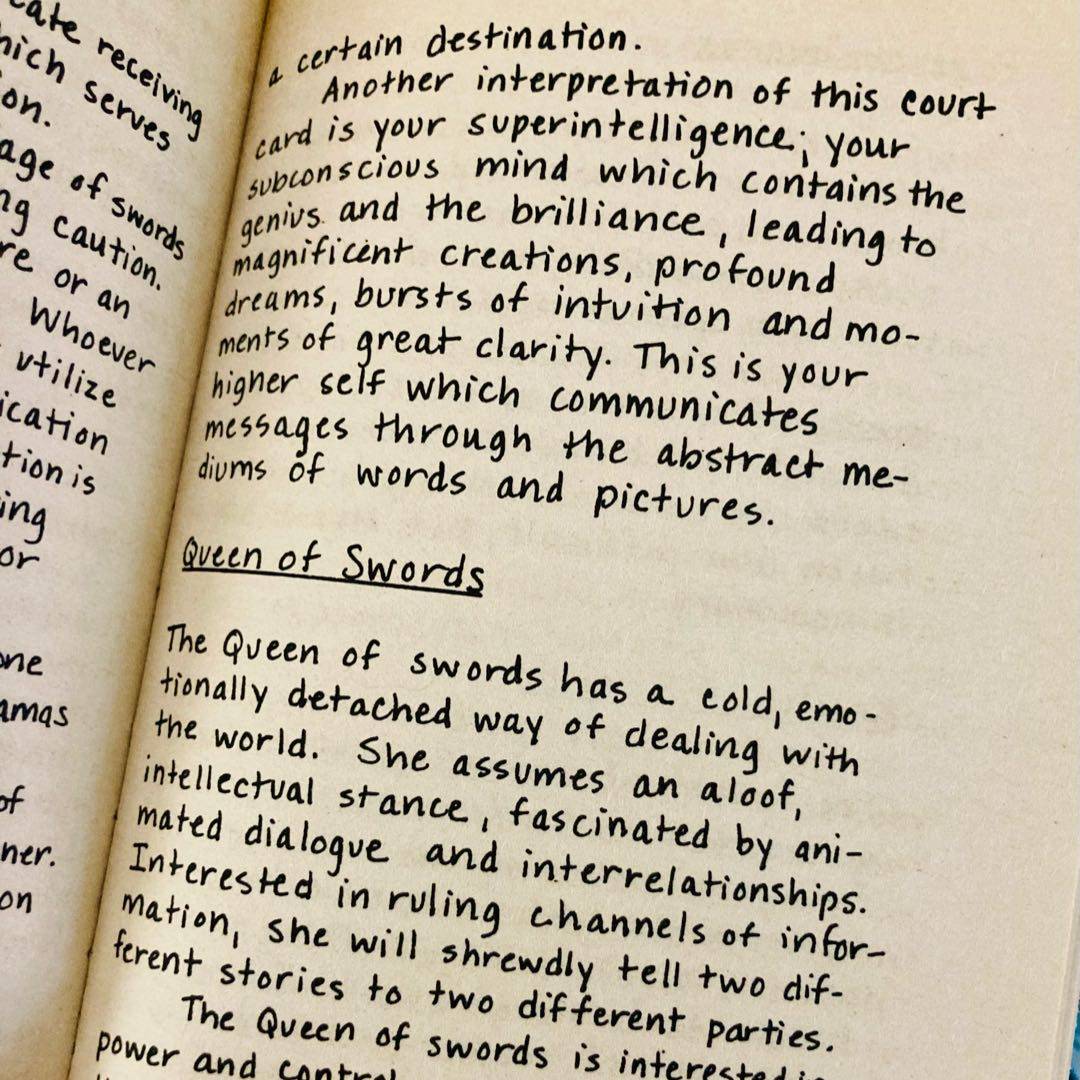 receiving
which serves
on.
age of swords
ng caution.
re or an
Whoever
utilize
ication
tion is
ing
or
one
amas
of
ner.
on
a certain destination.
Another interpretation of this court
card is your superintelligence; your
subconscious mind which contains the
genius and the brilliance, leading to
magnificent creations, profound
dreams, bursts of intuition and mo-
ments of great clarity. This is your
higher self which communicates
messages through the abstract me-
diums of words and pictures.
Queen of Swords
The Queen of swords has a cold, emo-
tionally detached way of dealing with
the world. She assumes an aloof,
intellectual stance, fascinated by ani-
mated dialogue and interrelationships.
Interested in ruling channels of infor-
mation, she will shrewdly tell two dif-
ferent stories to two different parties.
The Queen of swords is interested in
power and control